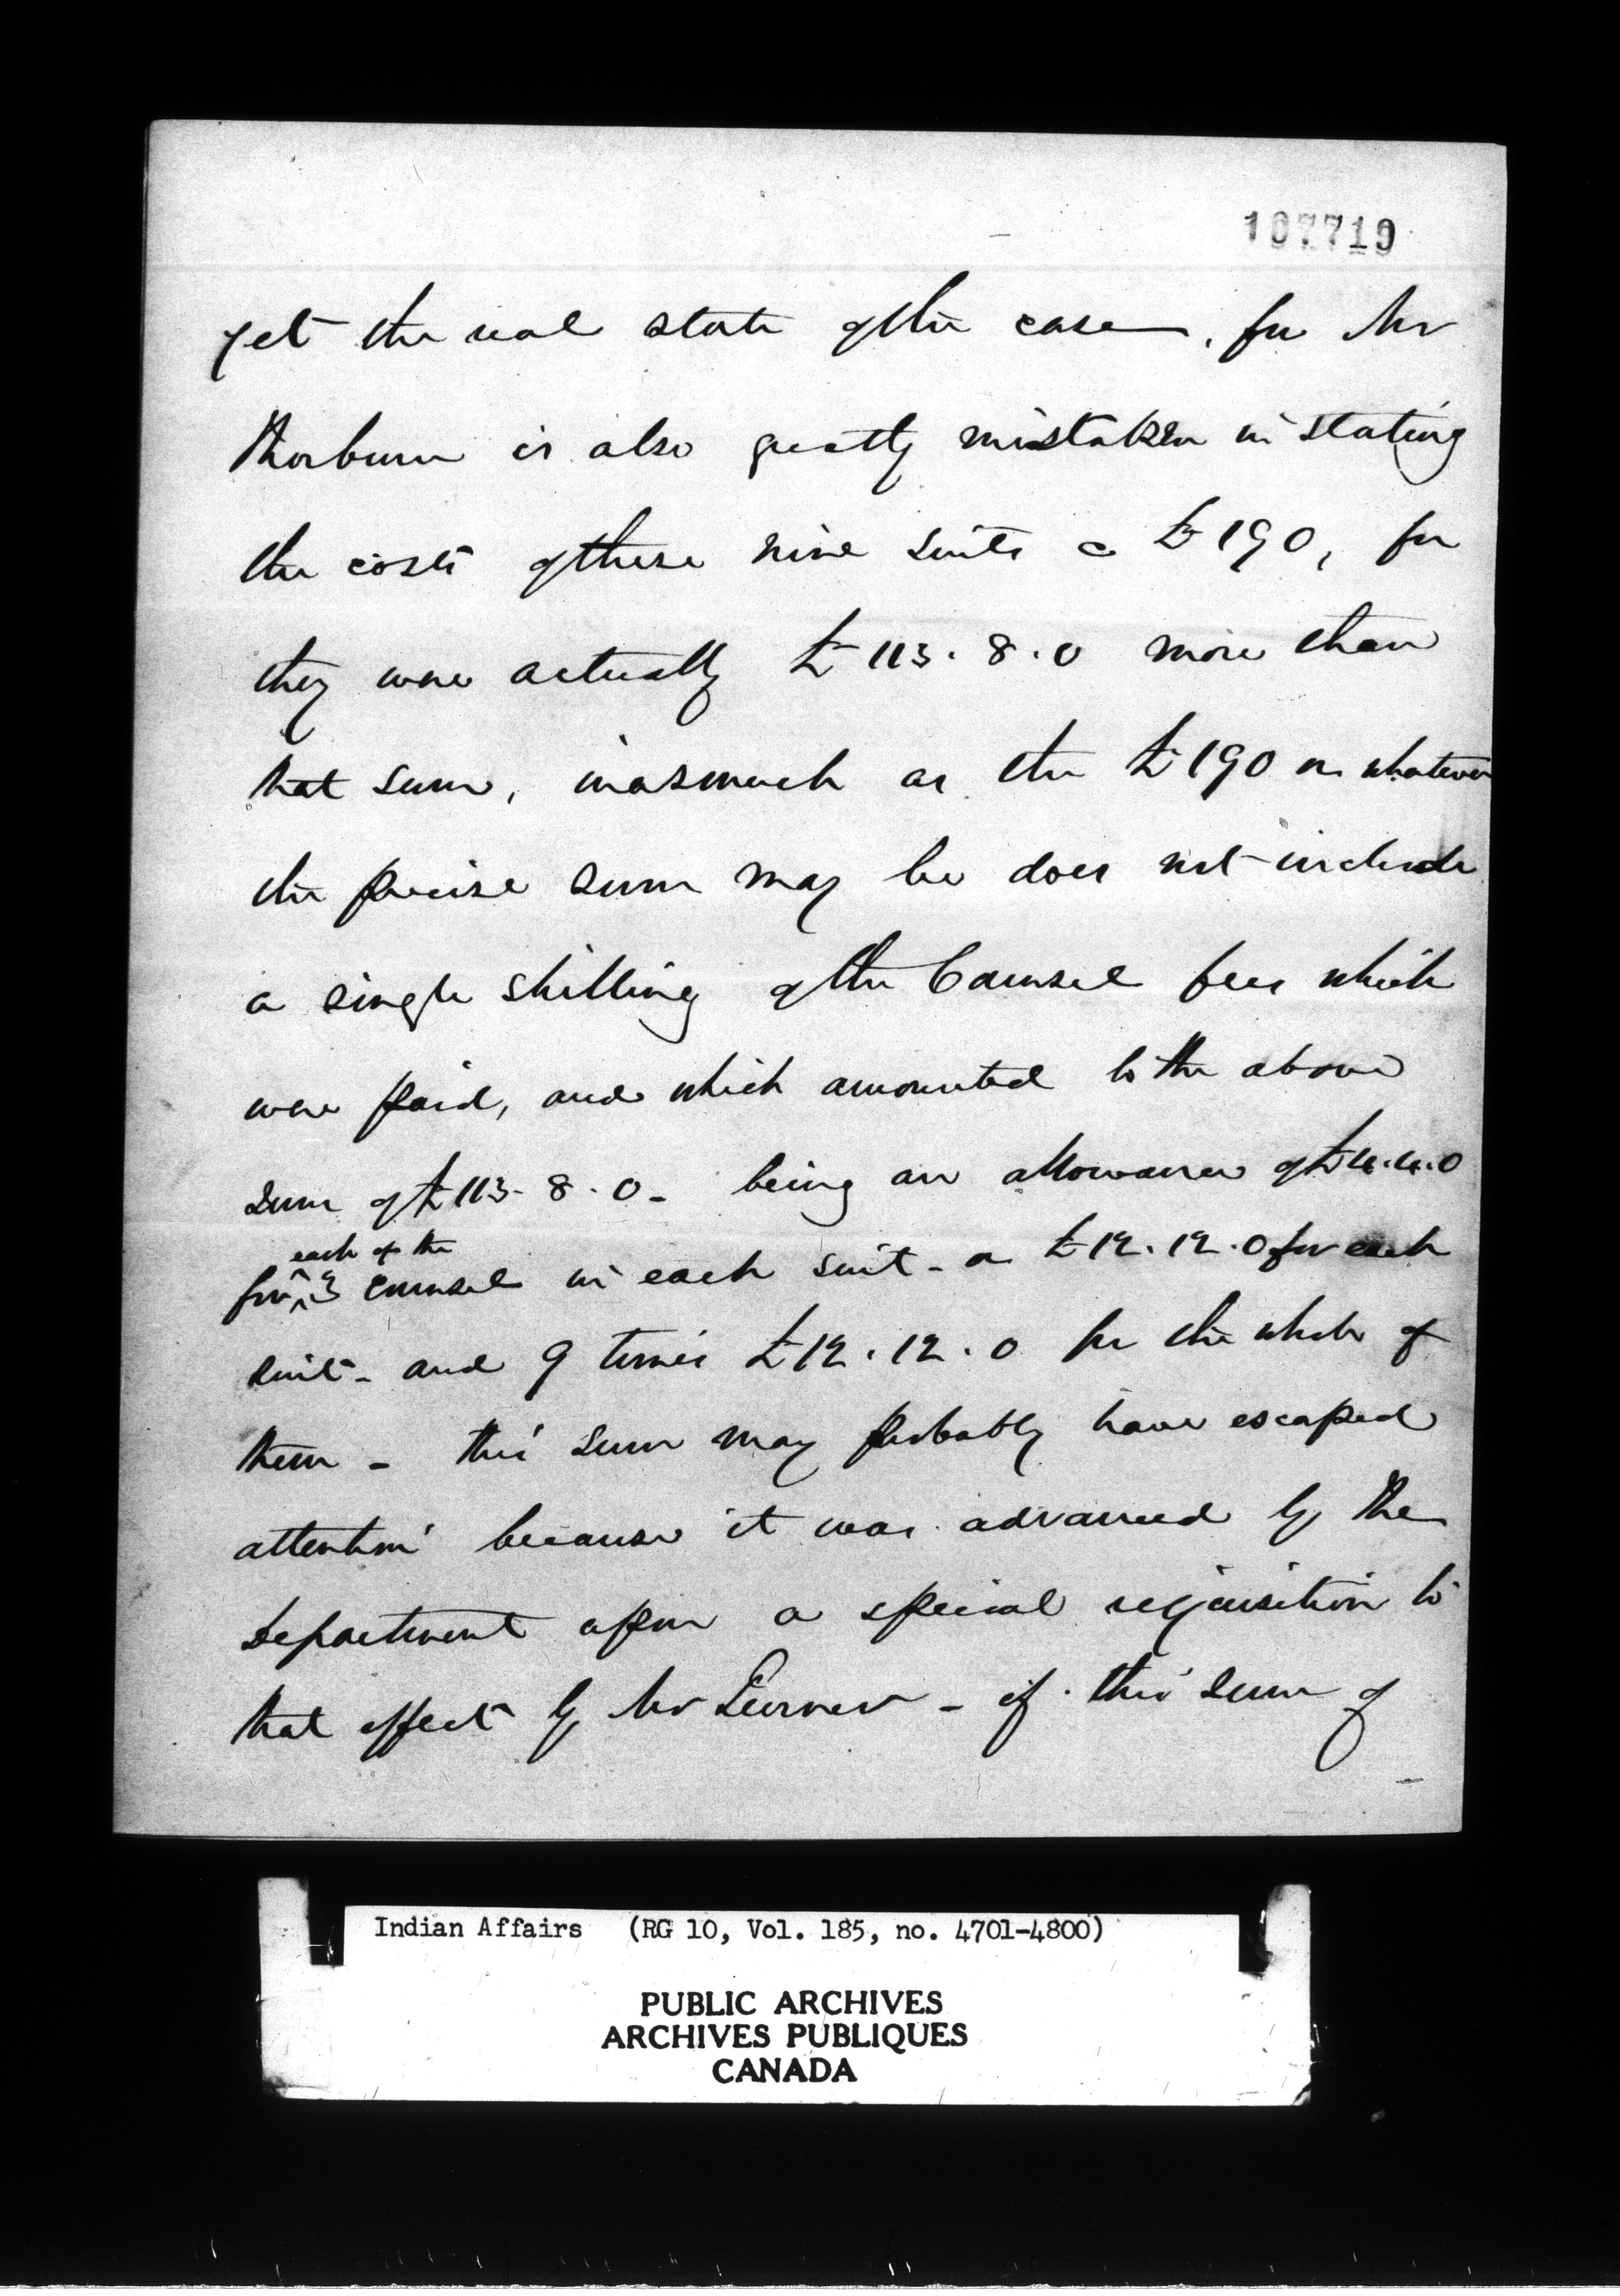 107719
yet the real state of the case, for Mr
Thorburn is also greatly mistaken in stating
the costs of these nine suits @ £190, for
they were actually £113.8.0 more than
that sum, inasmuch as the £190 or whatever
the precise sum may be does not include
a single shilling of the Counsel fees which
were paid, and which amounted to the above
Sum of £113.8.0 - being an allowance of £4.4.0
each of the
for 3 Counsel in each suit - or £12.12.0 for each
suit - and 9 times £12.12.0 for the whole of
them - this sum may probably have escaped
attention because it was advanced by the
Department upon a special requisition to
that effect by Mr Turner - if this sum of
Indian Affairs (RG 10, Vol. 185, no. 4701-4800)
PUBLIC ARCHIVES
ARCHIVES PUBLIQUES
CANADA